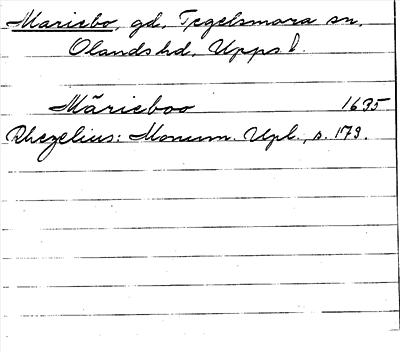 Mariebo, gd, Tegelsmora sn,
Olands hd, Upps l.
Märieboo 1635
Rhezelius: Monum. Upl., s. 179.